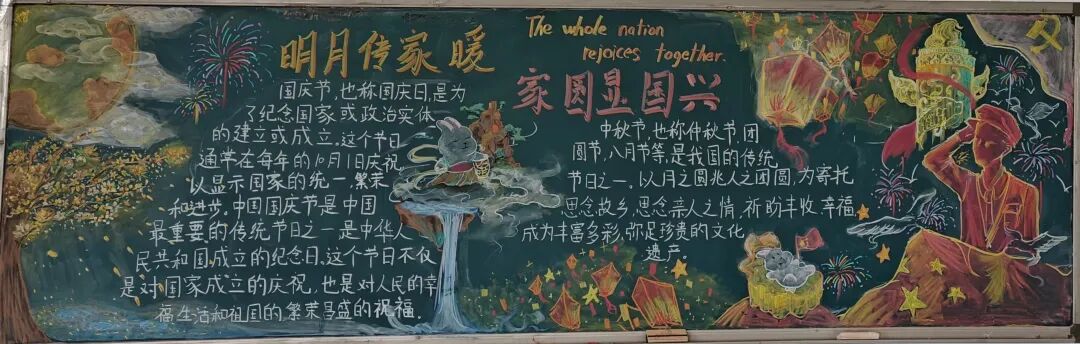 明月传家暖
国庆节,也称国庆日,是为
了纪念国家或政治实体
的建立或成立。这个节日
通常在每年的10月1日庆祝
以显示国家的统一、繁荣
和进步。中国国庆节是中国
最重要的传统节日之一,是中华人
民共和国成立的纪念日,这个节日不仅
是对国家成立的庆祝,也是对人民的幸
福生活和祖国的繁荣昌盛的祝福.
The whole nation
rejoices together.
家圆显国兴
中秋节,也称仲秋节、团
圆节、八月节等,是我国的传统
节日之一。以月之圆兆人之团圆,为寄托
思念故乡,思念亲人之情,祈盼丰收、幸福,
成为丰富多彩,弥足珍贵的文化
遗产。